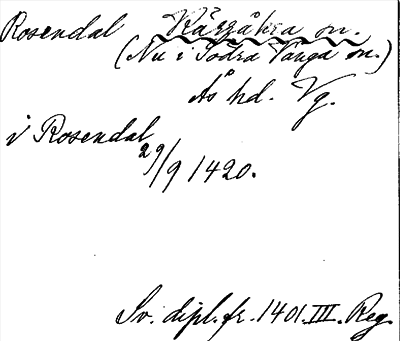 Rosendal Kärråkra sn.
(Nu i Södra Vånga sn.)
Ås hd. Vg.
i Rosendal
29/9 1420.
Sv. dipl. fr. 1401. III. Reg.